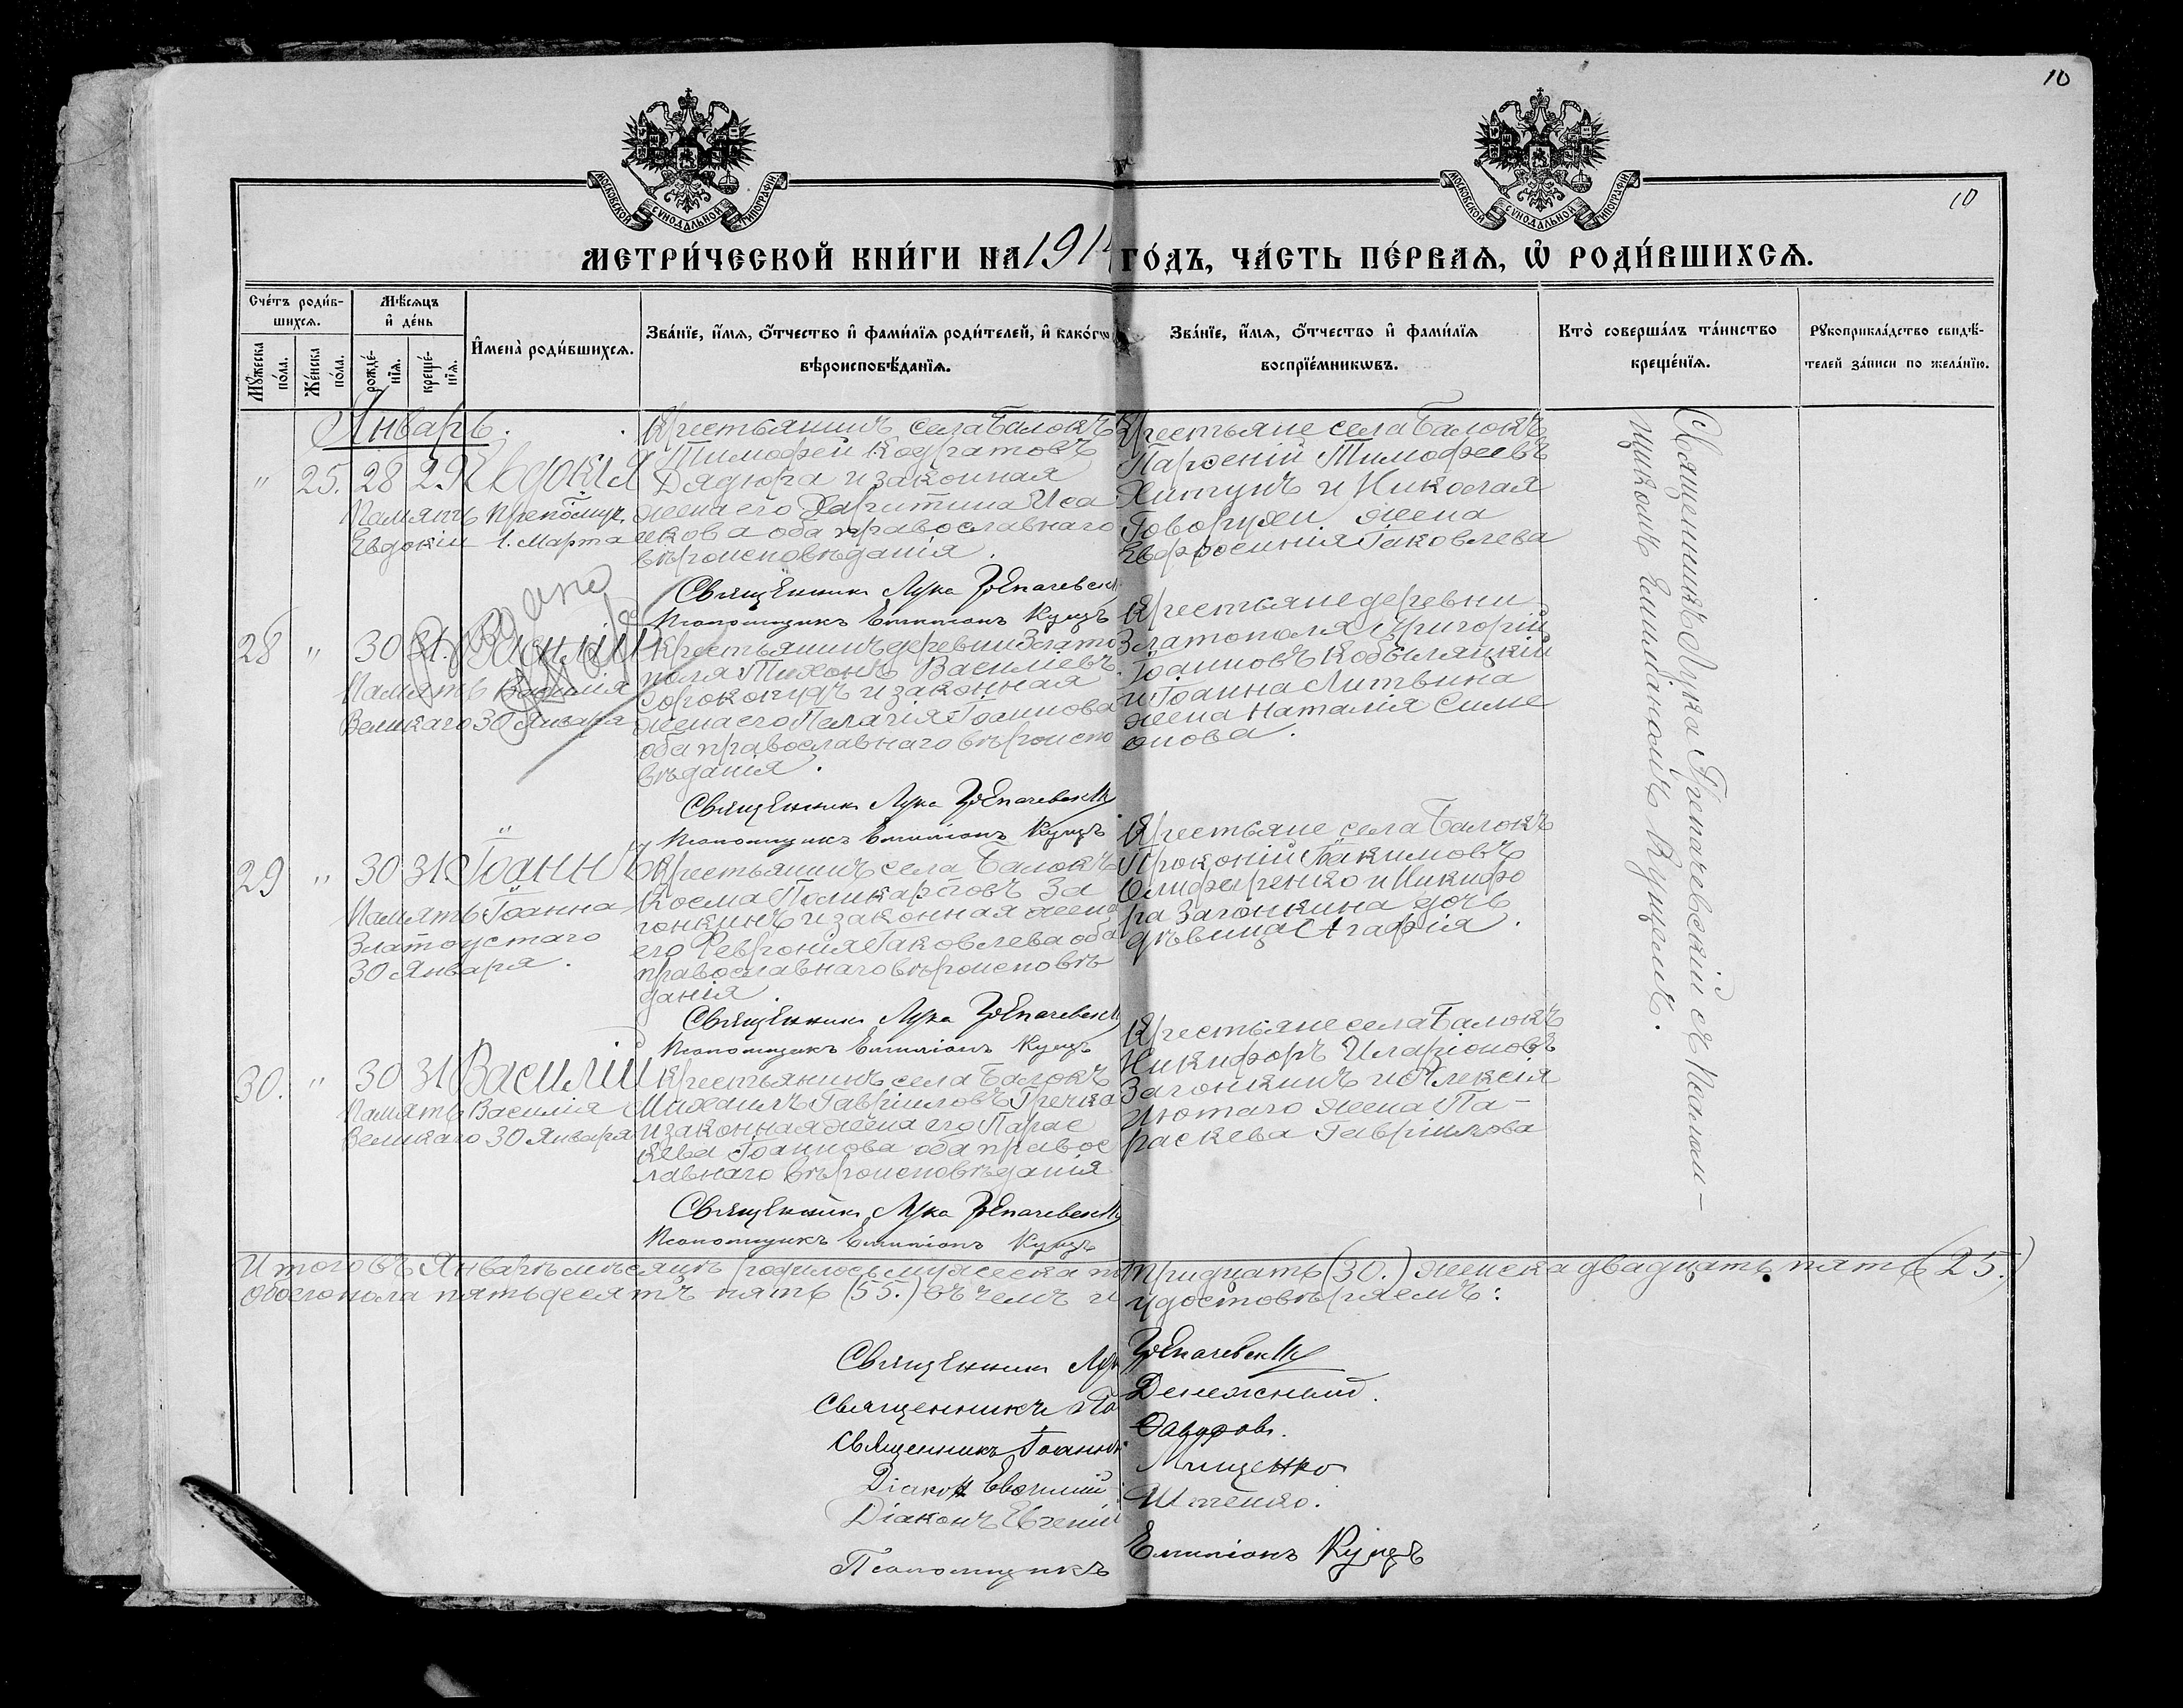 10
10
МОСКОВСКОЙ СѴНОДАЛЬНОЙ ТИПОГРАФІИ
МОСКОВСКОЙ СѴНОДАЛЬНОЙ ТИПОГРАФІИ
МЕТРИ́ЧЕСКОЙ КНИ́ГИ НА 1914 ГО́ДЪ, ЧА́СТЬ ПЕ́РВАѦ, Ѡ҆ РОДИ́ВШИХСѦ.
Сче́тъ роди́в-
шихсѧ.
Мꙋ́жеска по́ла.
Же́нска по́ла.
Мѣ́сѧцъ и҆ де́нь
рожде́-нїѧ.
креще́-нїѧ.
И҆мена̀ роди́вшихсѧ.
Зва́нїе, и҆́мѧ, ѻ҆́тчество и҆ фами́лїѧ роди́телей, и҆ како́гѡ
вѣроисповѣ́данїѧ.
Зва́нїе, и҆́мѧ, ѻ҆́тчество и҆ фами́лїѧ
воспрїе́мникѡвъ.
Кто̀ соверша́лъ та́инство
креще́нїѧ.
Рꙋкоприкла́дство свидѣ́-
телей за́писи по жела́нїю.
Январь.
" 25. 28 29 Евдокія
Память препомуч.
Евдокіи 1. Марта
Крестьянинъ села Балокъ
Тимофей Кодратовъ
Дядюра и законная
жена его Харитина Иса
кова оба православнаго
вѣроисповѣданія.
Священникъ Лука
Псаломщикъ Емиліанъ Куцъ
Крестьяне села Балокъ
Парѳеній Тимофеевъ
Хитунъ и Николая
Говорухи жена
Евфросинія Іаковлева
28 " 30 31. Василій
Память Василія
Великаго 30 Января
Крестьянинъ деревни Злато
поля Тихонъ Василіевъ
Сорокопудъ и законная
жена его Пелагія Іоаннова
оба православнаго вѣроиспо
вѣданія.
Священникъ Лука
Псаломщикъ Емиліанъ Куцъ
Крестьяне деревни
Златополя Григорій
Іоанновъ Кобыляцкій
и Іоанна Литвина
жена Наталія Симе
онова.
29 " 30 31 Іоаннъ
Память Іоанна
Златоустаго
30 Января.
Крестьянинъ села Балокъ
Косма Поликарповъ За
гонкинъ и законная жена
его Февронія Іаковлева оба
православнаго вѣроисповѣ
данія.
Священникъ Лука
Псаломщикъ Емиліанъ Куцъ
Крестьяне села Балокъ
Прокопій Іакимовъ
Олиференко и Никифо
ра Загонкина дочь
дѣвица Агафія.
30. " 30 31 Василій
Память Василія
Великаго 30 Января
Крестьянинъ села Балокъ
Михаилъ Гавріиловъ Гречка
и законная жена его Парас
кева Іоаннова оба правос
лавнаго вѣроисповѣданія
Священникъ Лука
Псаломщикъ Емиліанъ Куцъ
Крестьяне села Балокъ
Никифоръ Иларіоновъ
Загонкинъ и Алексія
Лютаго жена Па-
раскева Гавріилова
Священникъ Лука съ псалом-
щикомъ Емиліаномъ Куцемъ.
Итого въ Январѣ мѣсяцѣ родилось мужеска пола тридцать (30.) женска двадцать пять (25.)
Обоего пола пятьдесятъ пять (55.) въ чемъ и удостовѣряемъ:
Священникъ Лука
Священникъ
Священникъ Іоаннъ
Діаконъ Мищенко
Діаконъ Евгеній
Псаломщикъ Емиліанъ Куцъ